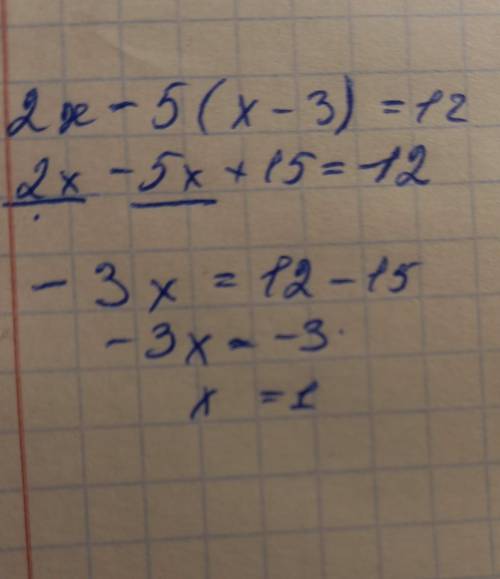 2x - 5(x - 3) = 12
2x - 5x + 15 = 12
- 3x = 12 - 15
- 3x = -3
x = 1